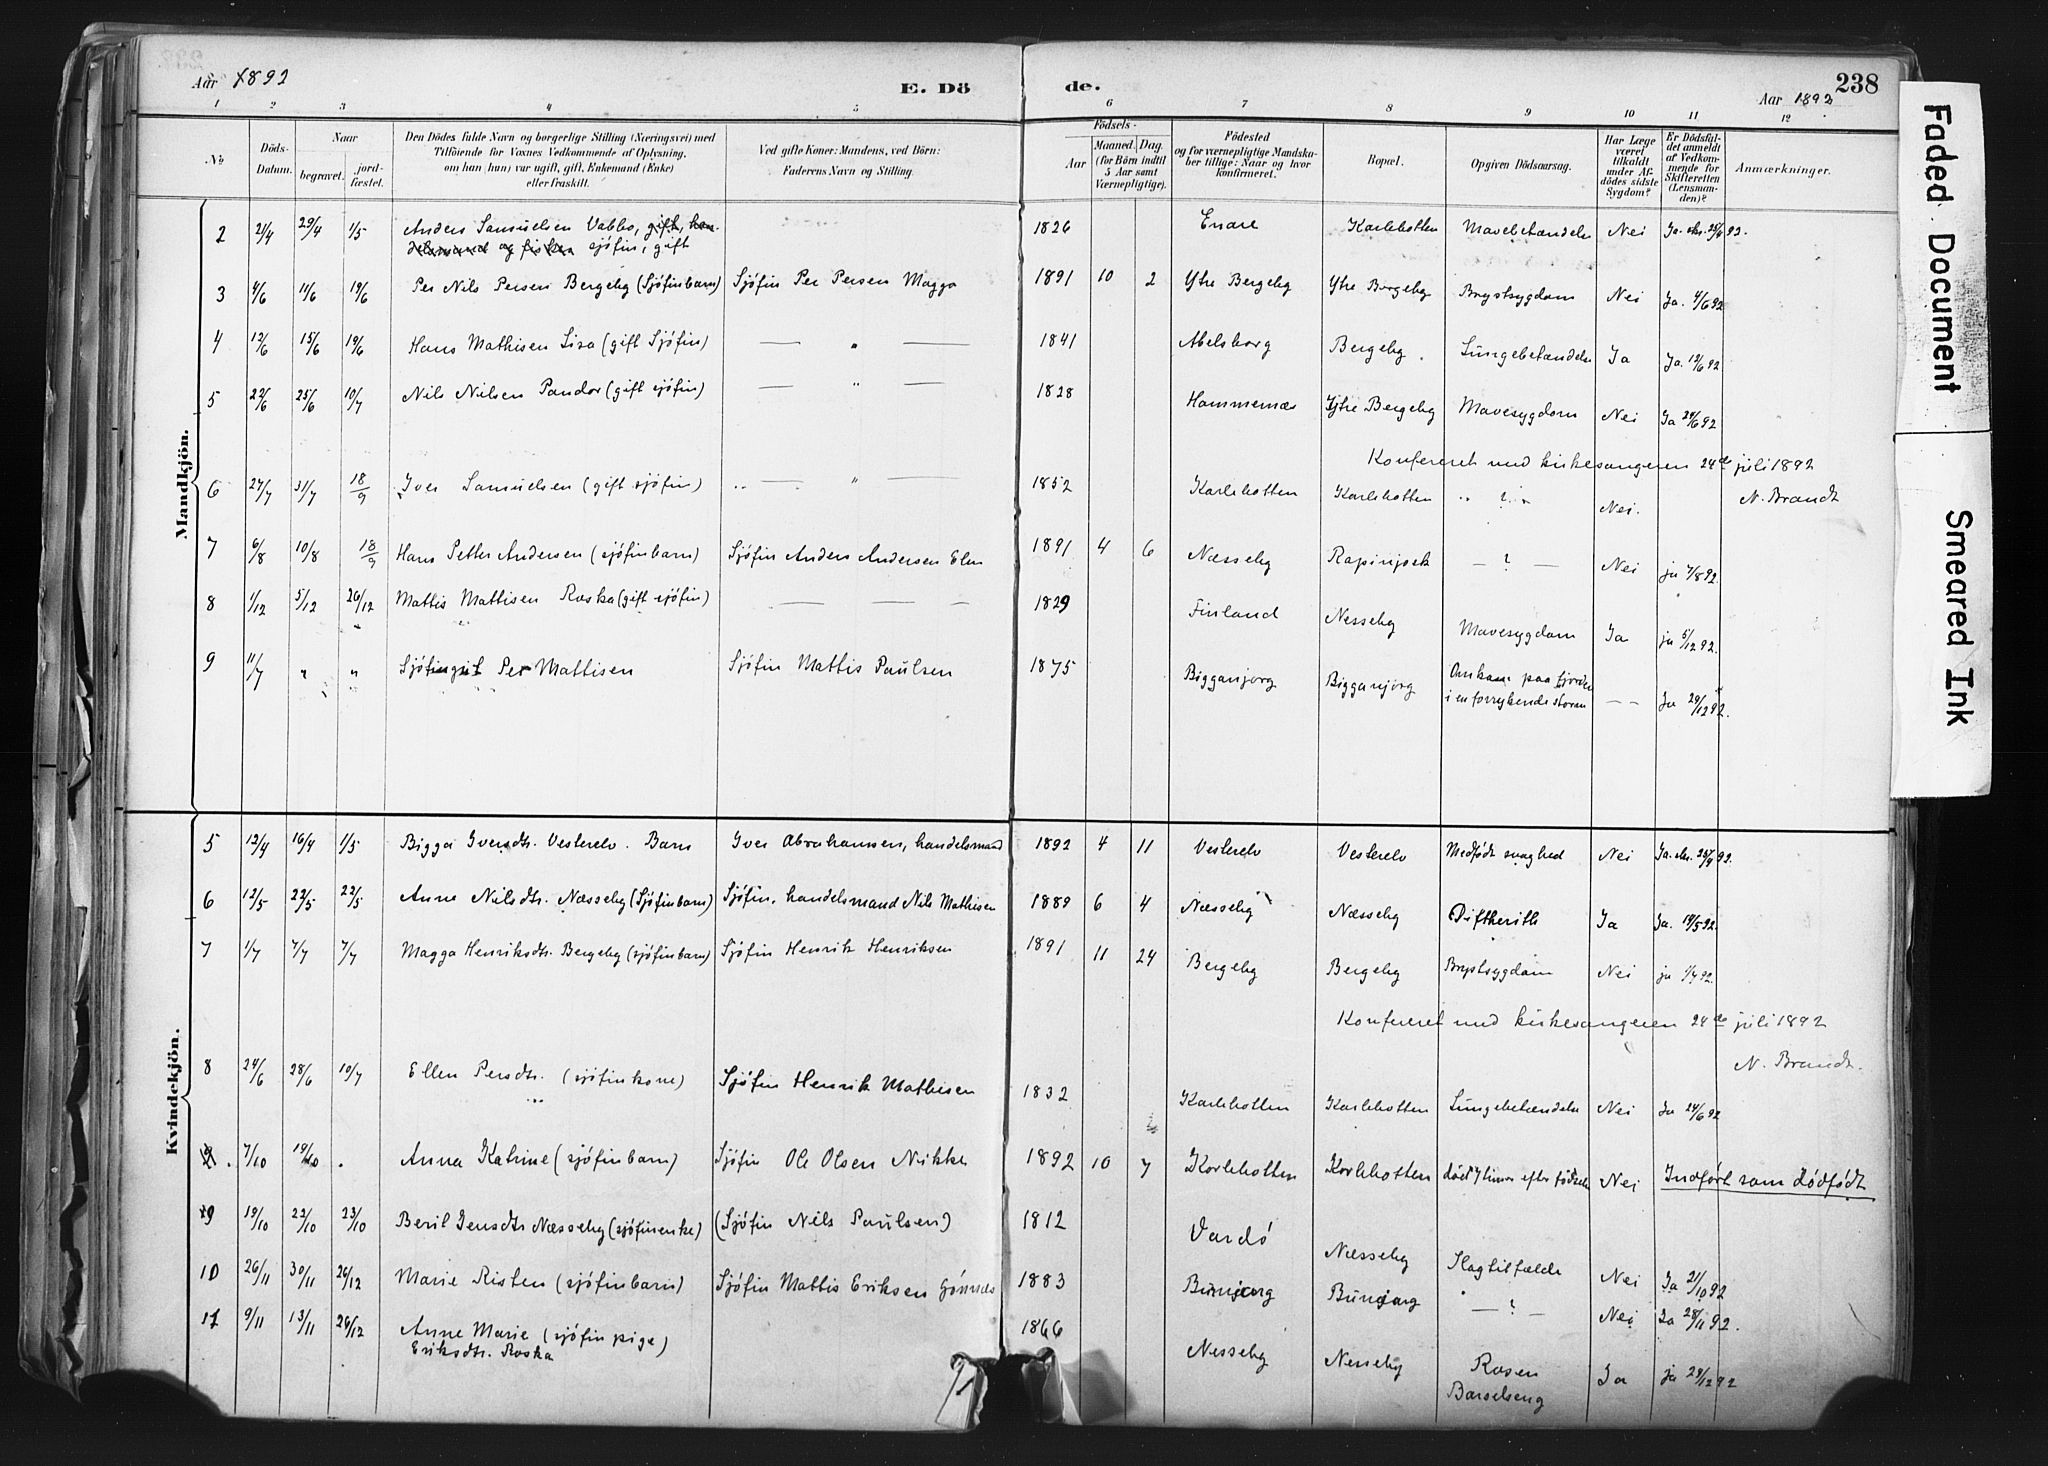 238
Aar 1892
E. Dö
de.
Aar 1892
1 2 3 4 5 6 7 8 9 10 11 12
№
Döds-Datum.
Naar
begravet.
jordfæstet.
Den Dödes fulde Navn og borgerlige Stilling (Næringsvei) med
Tilföiende for Voxnes Vedkommende af Oplysning,
om han (hun) var ugift, gift, Enkemand (Enke)
eller fraskilt.
Ved gifte Koner: Mandens, ved Börn:
Faderens Navn og Stilling.
Födsels-
Aar
Maaned. Dag.
(for Börn indtil
5 Aar samt
Værnepligtige).
Födested
og for værnepligtige Mandska-
ber tillige: Naar og hvor
konfirmeret.
Bopæl.
Opgiven Dödsaarsag.
Har Læge
været
tilkaldt
under Af-
dödes sidste
Sygdom?
Er Dödsfal-
det anmeldt
af Vedkom-
mende for
Skifteretten
(Lensman-
den)?
Anmærkninger.
Mandkjön.
2 21/4 29/4 1/5 Anders Samuelsen Vabbo, gift, han-
delsmand og fisker sjöfin, gift 1826 Enare Karlebotten Mavebetændelse Nei Ja
3 4/6 11/6 19/6 Per Nils Persen Bergeby (Sjöfinbarn) Sjöfin Per Persen Magga 1891 10 2 Ytre Bergeby Ytre Bergeby Brystsygdom Nei Ja. 4/6 92
4 12/6 15/6 19/6 Hans Mathisen Lisa (gift Sjöfin) — " — 1841 Abelsborg Bergeby. Lungebetændelse Ja Ja. 12/6 92
5 22/6 25/6 10/7 Nils Nilsen Pandor (gift sjöfin) — " — 1828 Hammernæs Ytre Bergeby Mavesygdom Nei Ja 24/6 92
Konfereret med kirkesangeren 24de juli 1892
N. Brandt
6 27/7 31/7 18/9 Iver Samuelsen (gift sjöfin) — " — 1852 Karlebotten Karlebotten ? Nei.
7 6/8 10/8 18/9 Hans Petter Andersen (sjöfinbarn) Sjöfin Anders Andersen Elen 1891 4 6 Næsseby Rapinjok — ? — Nei ja 7/8 92.
8 1/12 5/12 26/12 Mattis Mattisen Roska (gift sjöfin) — — — 1829 Finland Nesseby Mavesygdom Ja ja 5/12 92.
9 11/7 " " Sjöfingut Per Mattisen Sjöfin Mattis Paulsen 1875 Bigganjorg Bigganjörg Omkom paa fjorden
i en forrykende storm — — Ja 29/12 92.
Kvindekjön.
5 12/4 16/4 1/5 Bigga Iversdtr. Vesterelv. Barn Iver Abrahamsen, handelsmand 1892 4 11 Vesterelv Vesterelv Medfödt svaghed Nei Ja
6 12/5 22/5 22/5 Anne Nilsdtr. Næsseby (Sjöfinbarn) Sjöfin, handelsmand Nils Mathisen 1889 6 4 Næsseby Næsseby Diftherith Ja Ja. 19/5 92.
7 1/7 7/7 7/7 Magga Henriksdtr. Bergeby (sjöfinbarn) Sjöfin Henrik Henriksen 1891 11 24 Bergeby Bergeby Brystsygdom Nei ja 1/7 92.
Konfereret med kirkesangeren 24de juli 1892
N. Brandt.
8 24/6 28/6 10/7 Ellen Persdtr. (sjöfinkone) Sjöfin Henrik Mathisen 1832 Karlebotten Karlebotten Lungebetændelse Nei Ja 24/6 92
7/10 19/10 . Anna Katrine (sjöfinbarn) Sjöfin Ole Olsen Nikke 1892 10 7 Karlebotten Karlebotten död 7 timer efter födselen Nei Indfört som dödfödt
9 19/10 22/10 23/10 Beril Jensdtr Næsseby (sjöfinenke) (Sjöfin Nils Paulsen) 1812 Vardö Næsseby Slagtilfælde Nei Ja 21/10 92
10 26/11 30/11 26/12 Marie Risten (sjöfinbarn) Sjöfin Mattis Eriksen 1883 Bunjarg Bunjarg — ? — Nei Ja 28/11 92.
11 9/11 13/11 26/12 Anne Marie (sjöfin pige)
Eriksdtr. Roska 1866 Nesseby Nesseby Rosen
Barselseng Ja ja 29/12 92
Faded Document
Smeared Ink